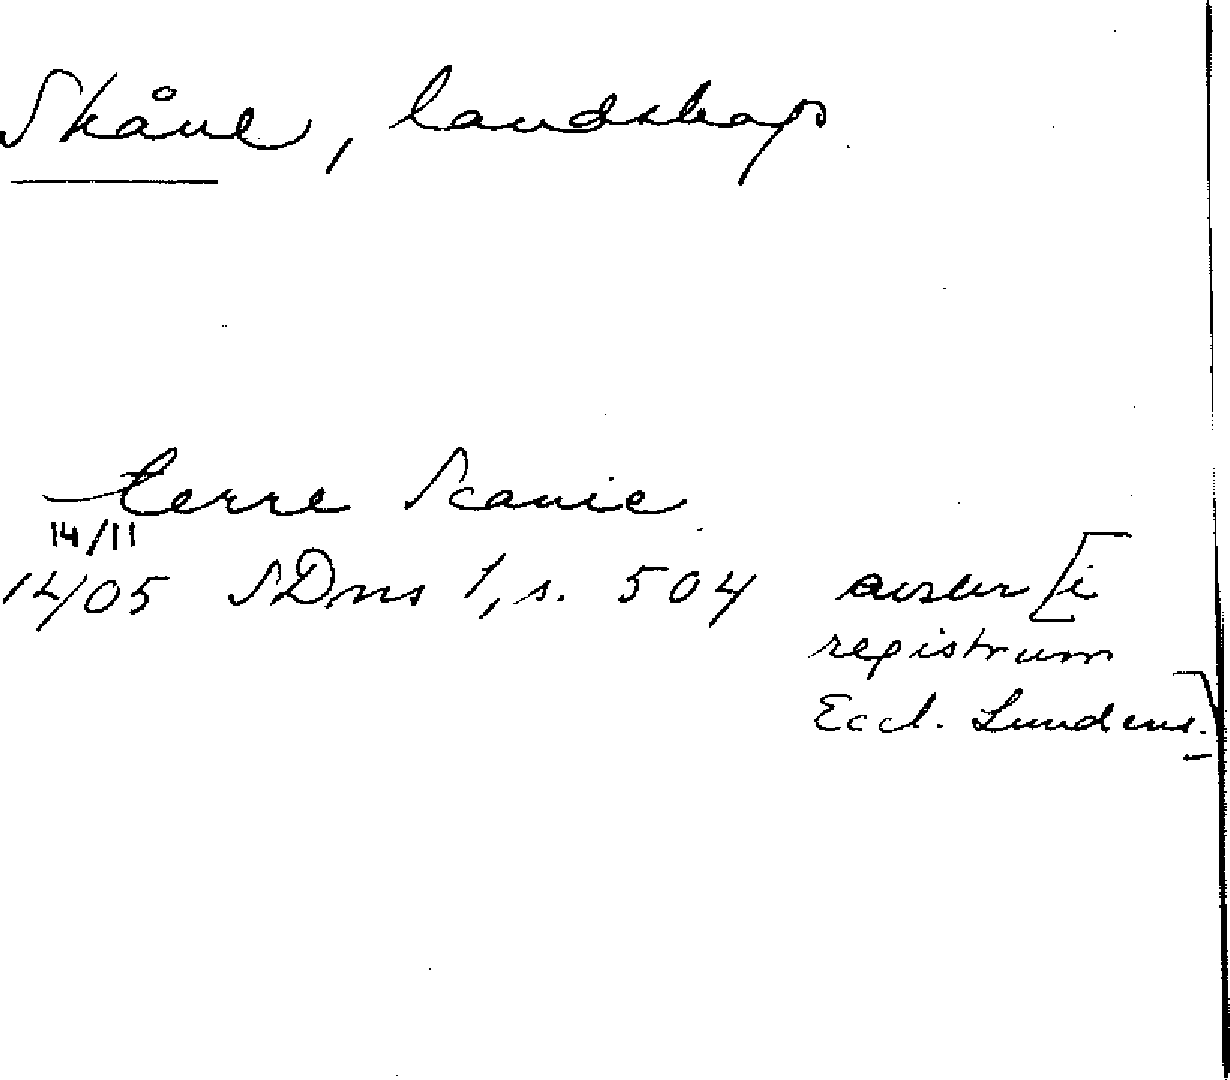 Skåne, landskap
terre Scanie
14/11
1405 SDns 1, s. 504 avskr [i
registrum
Eccl. Lundens.]